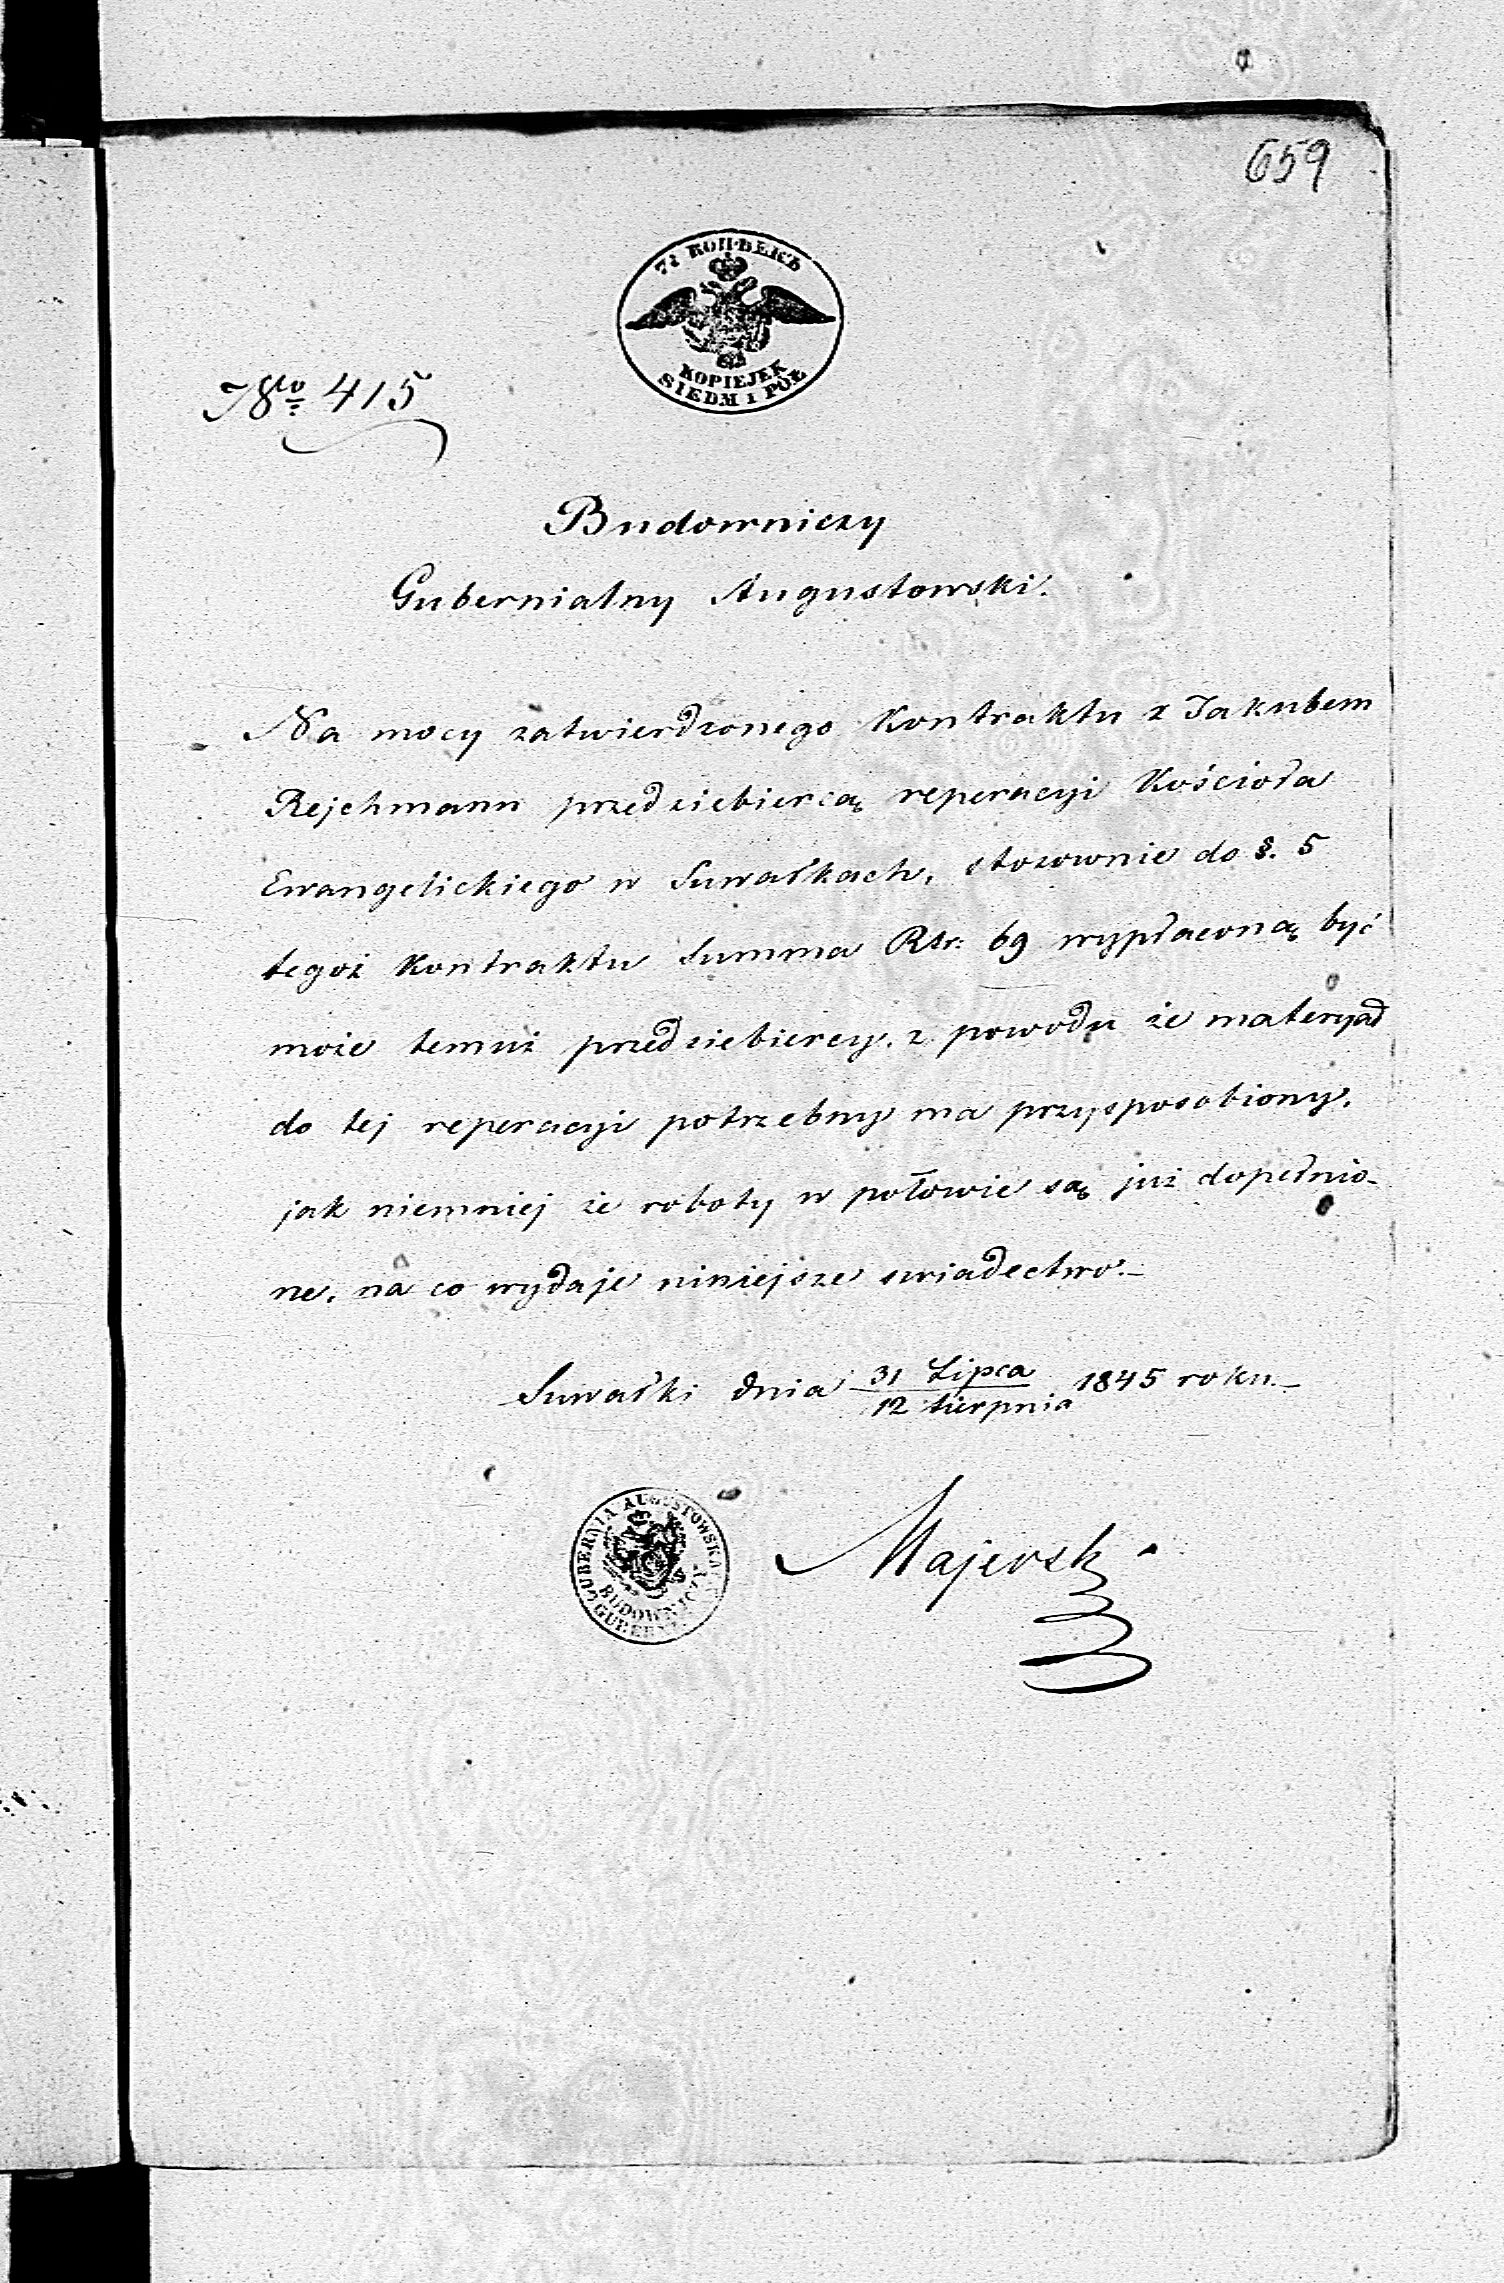 659
7½ КОПѢЕКЪ
KOPIEJEK
SIEDM I PÓŁ
Nro 415
Budowniczy
Gubernialny Augustowski.
Na mocy zatwierdzonego Kontraktu z Jakubem
Rejchmann przedziebiercą reperacyi Kościoła
Ewangelickiego w Suwałkach, stosownie do §. 5
tegoż Kontraktu Summa Rsr: 69 wypłaconą być
może temuż przedziebiercy. z powodu że materyał
do tej reperacyi potrzebny ma przysposobiony.
jak niemniej że roboty w połowie są już dopełnio-
ne. na co wydaje niniejsze swiadectwo.—
Suwałki dnia 31 Lipca 1845 roku.—
12 Sierpnia
GUBERNIA AUGUSTOWSKA
BUDOWNICZY
GUBERN.
Majewski